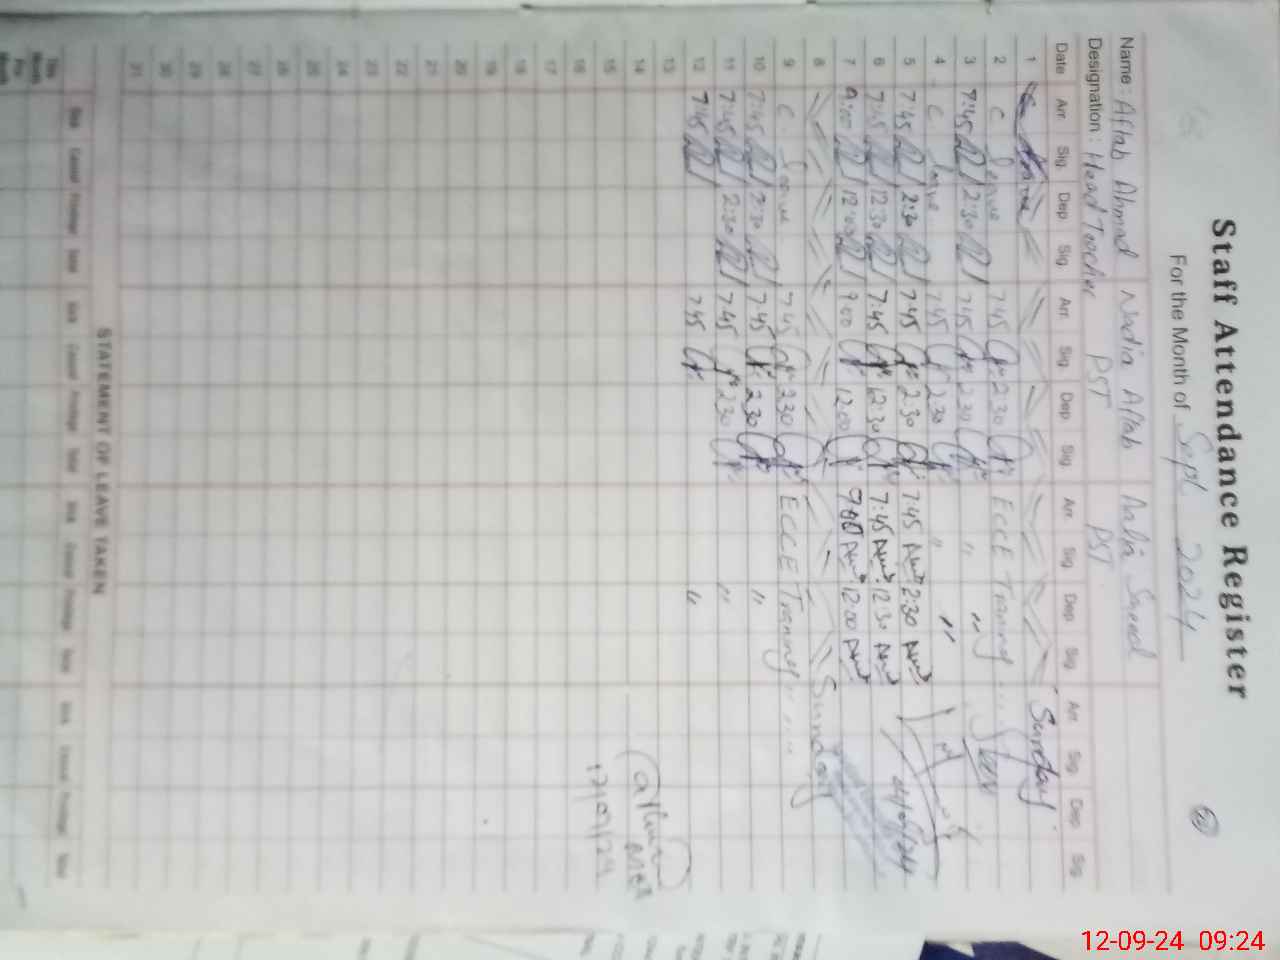 Staff Attendance Register
For the Month of Sept 2024
Name : Aftab Ahmad Nadia Aftab Saeed
Designation : Head Teacher PST PST
Date Arr. Sig. Dep Sig. Arr. Sig. Dep Sig. Arr. Sig. Dep Sig. Arr. Sig. Dep Sig.
1 Sunday
2 C Leave 7:45 2:30 ECCE Training
3 7:45 2:30 7:45 2:30 " "
4 C Leave 7:45 2:30 " "
5 7:45 2:30 7:45 2:30 7:45 2:30
6 7:45 12:30 7:45 12:30 7:45 12:30
7 9:00 12:00 9:00 12:00 900 12:00
8 Sunday
9 C Leave 7:45 2:30 ECCE Training
10 7:45 2:30 7:45 2:30 "
11 7:45 2:30 7:45 2:30 "
12 7:45 7:45 "
13
14
15
16
17
18
19
20
21
22
23
24
25
26
27
28
29
30
31
STATEMENT OF LEAVE TAKEN
Casual Privilege Total Casual Privilege Total Casual Privilege Total Casual Privilege Total
This Month
12-09-24 09:24